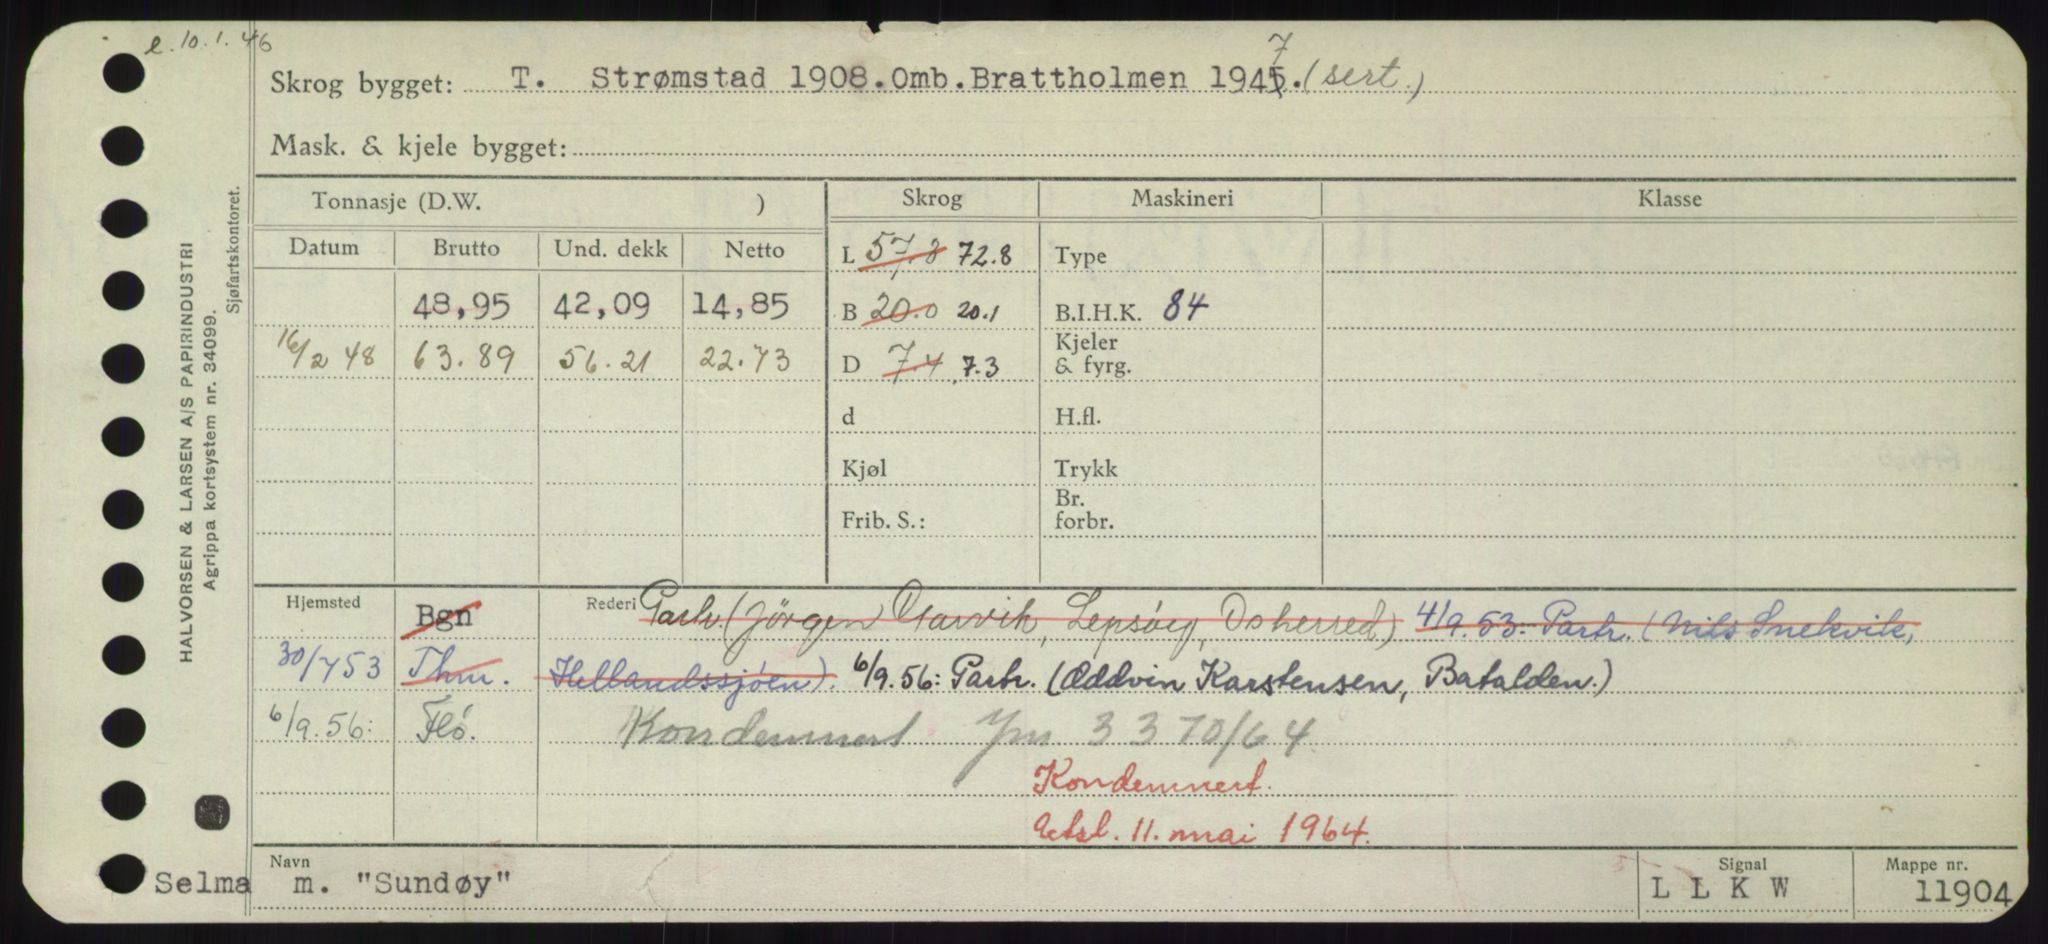 e. 10.1.46
Skrog bygget: T. Strømstad 1908. Omb. Brattholmen 1945. 7 (sert.)
Mask. & kjele bygget:
Tonnasje (D.W. ) Skrog Maskineri Klasse
Datum Brutto Und. dekk Netto L 57.8 72.8 Type
48,95 42,09 14,85 B 20.0 20.1 B.I.H.K. 84
16/2 48 63.89 56.21 22.73 D 7.4 7.3 Kjeler & fyrg.
d H.fl.
Kjøl Trykk
Frib. S.: Br. forbr.
Hjemsted Bgn Rederi Partr. (Jörgen Oservik, Lepsöy, Os herred) 4/9.53: Partr. (Nils Snekvik,
30/7 53 Thm. Hellandssjöen). 6/9.56: Partr. (Oddvin Karstensen, Batalden.)
6/9.56: Flö. Kondemnert Jnr. 3370/64.
Kondemnert.
Utsl. 11. mai 1964.
Navn Signal Mappe nr.
Selma m. "Sundøy" L L K W 11904
HALVORSEN & LARSEN A/S PAPIRINDUSTRI
Agrippa kortsystem nr. 34099.
Sjøfartskontoret.